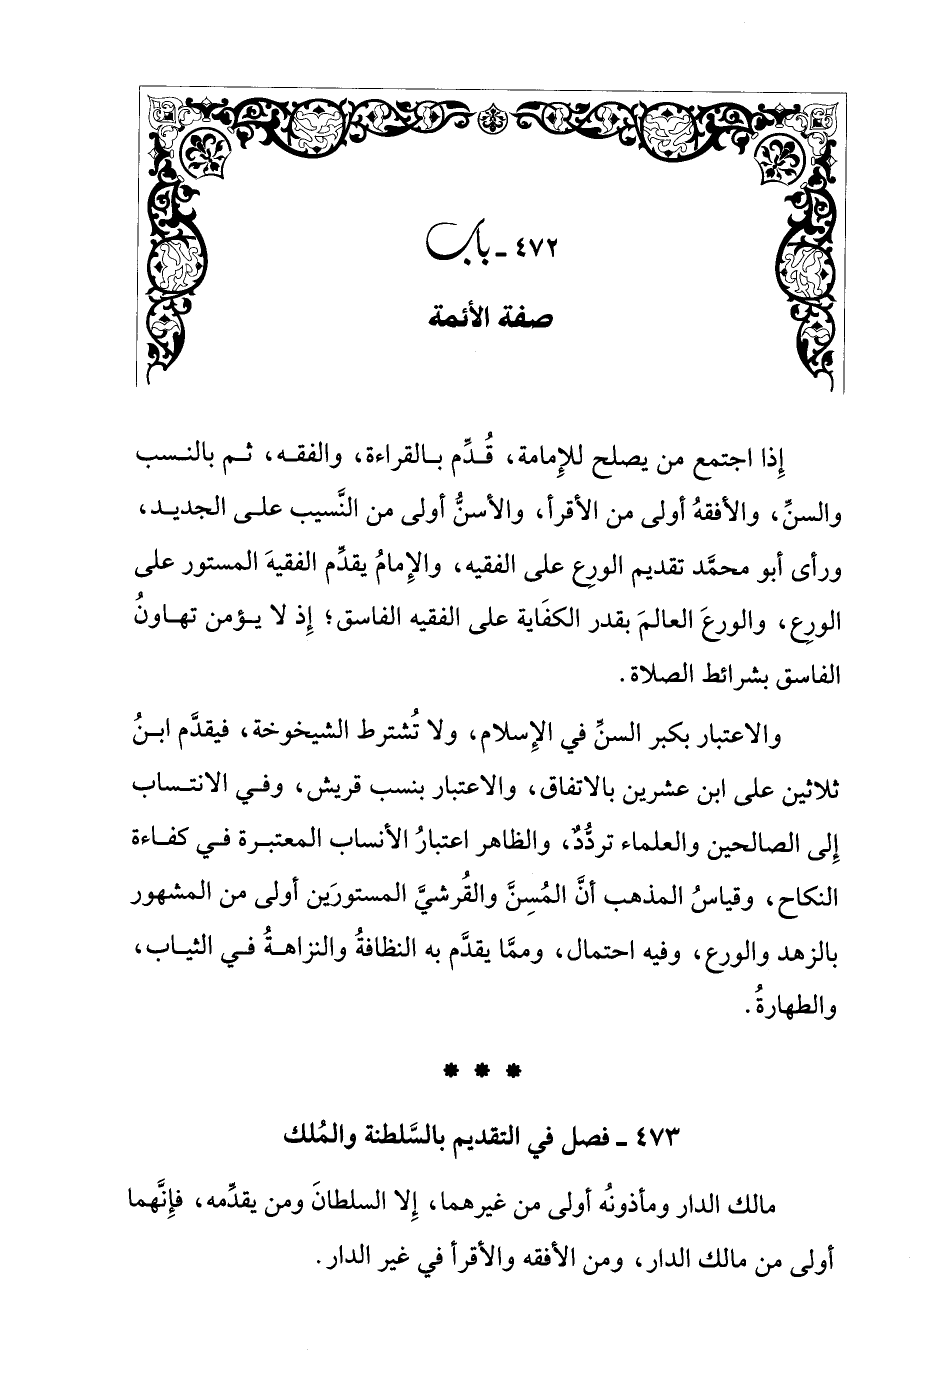 ٤٧٢ - باب
صفة الأئمة
إِذا اجتمع من يصلح للإِمامة، قُدِّم بالقراءة، والفقه، ثم بالنسب
والسنِّ، والأفقهُ أولى من الأقرأ، والأسنُّ أولى من النَّسيب على الجديد،
ورأى أبو محمَّد تقديم الورِع على الفقيه، والإِمامُ يقدِّم الفقيهَ المستور على
الورِع، والورعَ العالمَ بقدر الكفَاية على الفقيه الفاسق؛ إِذ لا يؤمن تهاونُ
الفاسق بشرائط الصلاة.
والاعتبار بكبر السنِّ في الإِسلام، ولا تُشترط الشيخوخة، فيقدَّم ابنُ
ثلاثين على ابن عشرين بالاتفاق، والاعتبار بنسب قريش، وفي الانتساب
إِلى الصالحين والعلماء تردُّدٌ، والظاهر اعتبارُ الأنساب المعتبرة في كفاءة
النكاح، وقياسُ المذهب أنَّ المُسِنَّ والقُرشيَّ المستورَين أولى من المشهور
بالزهد والورع، وفيه احتمال، وممَّا يقدَّم به النظافةُ والنزاهةُ في الثياب،
والطهارةُ.
* * *
٤٧٣ - فصل في التقديم بالسَّلطنة والمُلك
مالك الدار ومأذونُه أولى من غيرهما، إِلا السلطانَ ومن يقدِّمه، فإِنَّهما
أولى من مالك الدار، ومن الأفقه والأقرأ في غير الدار.